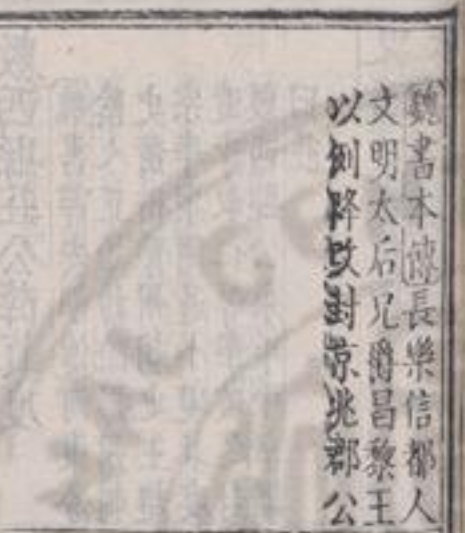 魏書本傳長樂信都人
文明太后兄爵昌黎王
以例降改封京兆郡公